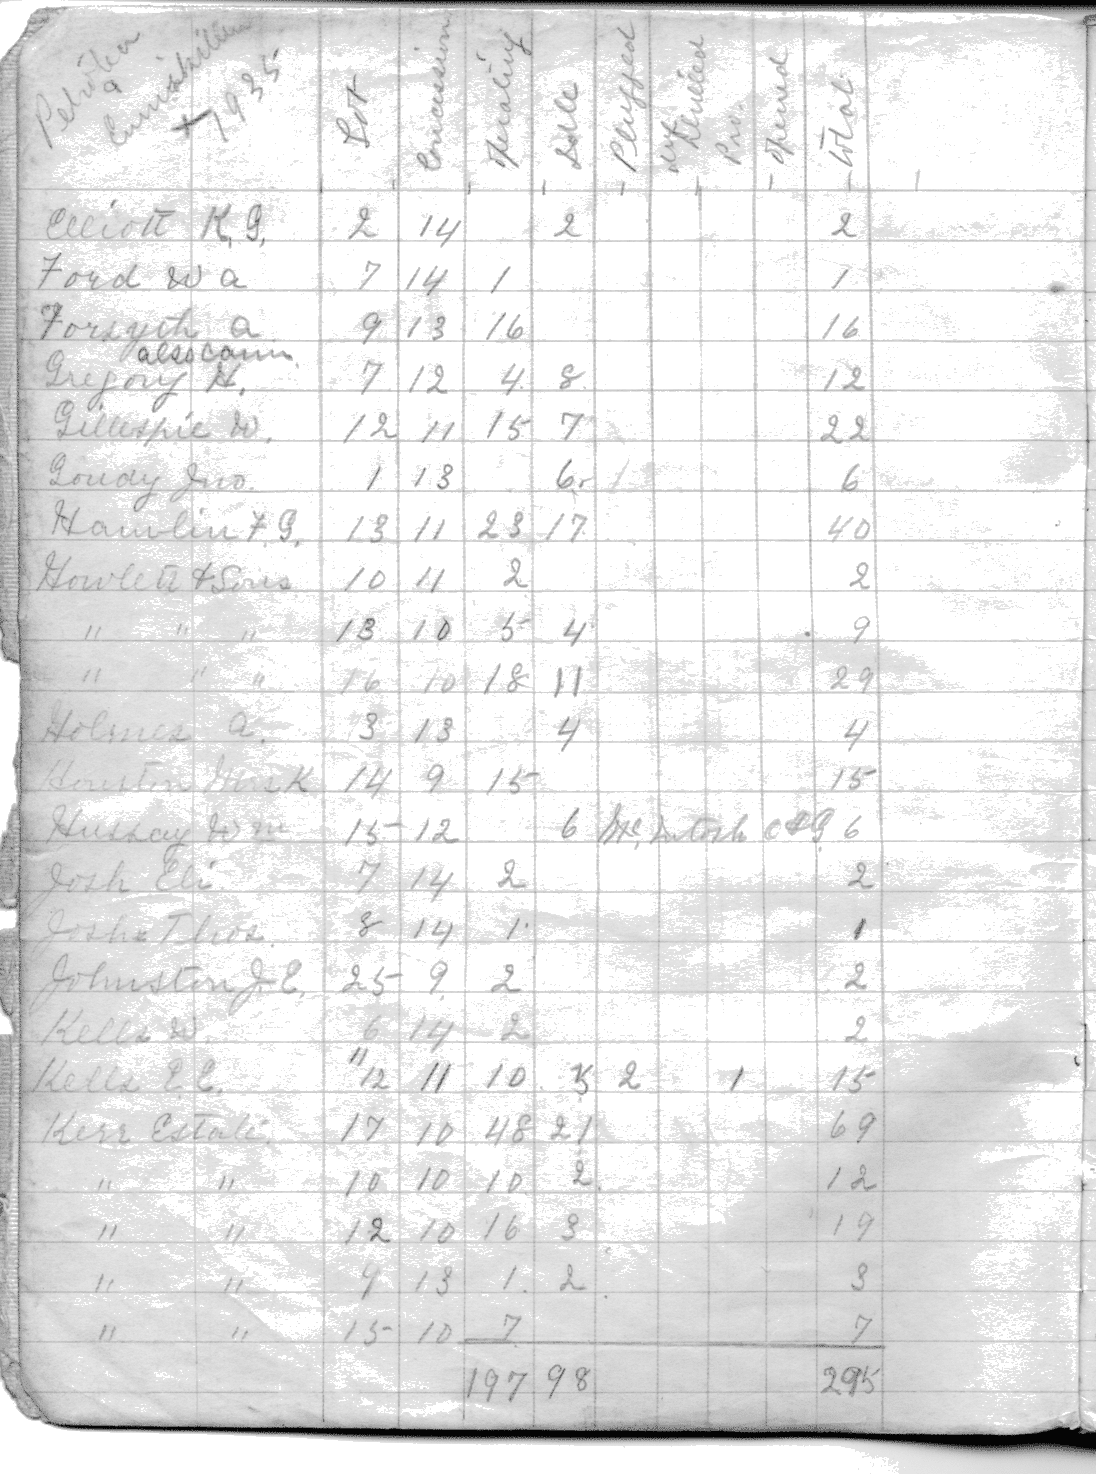 Petrolia & Enniskillen 1935 Lot Concession operating Idle Plugged Drilled Pro. opened total
Elliott K. G. 2 14 2 2
Ford W A 7 14 1 1
Forsyth A 9 13 16 16
also Cann.
Gregory H. 7 12 4 8 12
Gillespie W. 12 11 15 7 22
Goudy Jno. 1 13 6 6
Hamlin F. G. 13 11 23 17 40
Howlett & Sons 10 11 2 2
" " " 13 10 5 4 9
" " " 16 10 18 11 29
Holmes A. 3 13 4 4
Houston K 14 9 15 15
Hussay Wm 15 12 6 McIntosh C & G 6
Josh Eli. 7 14 2 2
Joshe Thos. 8 14 1 1
Johnston J. E. 25 9 2 2
Kells W. 6 14 2 2
Kells E. E. " 12 11 10 5 2 1 15
Kerr Estate. 17 10 48 21 69
" " 10 10 10 2 12
" " 12 10 16 3 19
" " 9 13 1 2 3
" " 15 10 7 7
197 98 295